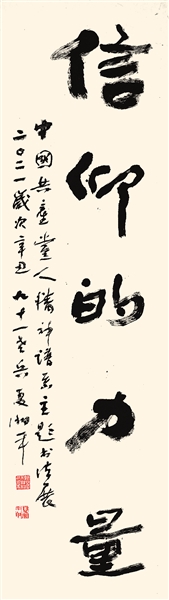 信仰的力量
中國共產黨人精神譜系主題書法展
二〇二一歲次辛丑九十一老兵夏湘平